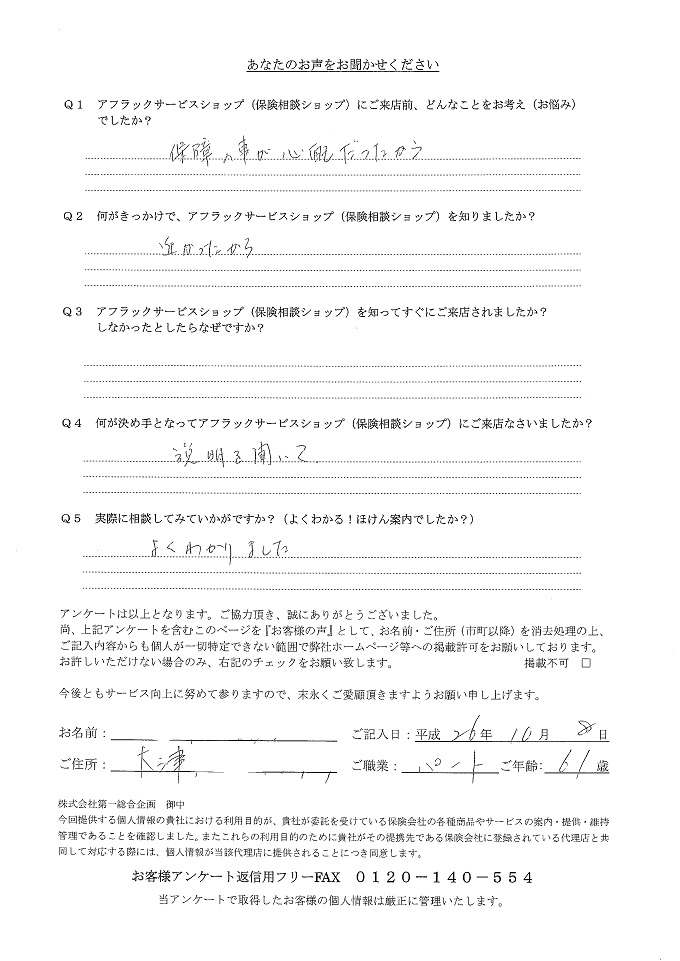 あなたのお声をお聞かせください
Q1 アフラックサービスショップ（保険相談ショップ）にご来店前、どんなことをお考え（お悩み）
でしたか？
保障の事が心配だったから
Q2 何がきっかけで、アフラックサービスショップ（保険相談ショップ）を知りましたか？
近かったから
Q3 アフラックサービスショップ（保険相談ショップ）を知ってすぐにご来店されましたか？
しなかったとしたらなぜですか？
Q4 何が決め手となってアフラックサービスショップ（保険相談ショップ）にご来店なさいましたか？
説明を聞いて
Q5 実際に相談してみていかがですか？（よくわかる！ほけん案内でしたか？）
よくわかりました
アンケートは以上となります。ご協力頂き、誠にありがとうございました。
尚、上記アンケートを含むこのページを『お客様の声』として、お名前・ご住所（市町以降）を消去処理の上、
ご記入内容からも個人が一切特定できない範囲で弊社ホームページ等への掲載許可をお願いしております。
お許しいただけない場合のみ、右記のチェックをお願い致します。 掲載不可 □
今後ともサービス向上に努めて参りますので、末永くご愛顧頂きますようお願い申し上げます。
お名前： ご記入日：平成 26年 10月 8日
ご住所： 大津 ご職業： パート ご年齢： 61歳
株式会社第一総合企画 御中
今回提供する個人情報の貴社における利用目的が、貴社が委託を受けている保険会社の各種商品やサービスの案内・提供・維持
管理であることを確認しました。またこれらの利用目的のために貴社がその提携先である保険会社に登録されている代理店と共
同して対応する際には、個人情報が当該代理店に提供されることにつき同意します。
お客様アンケート返信用フリーFAX 0120－140－554
当アンケートで取得したお客様の個人情報は厳正に管理いたします。